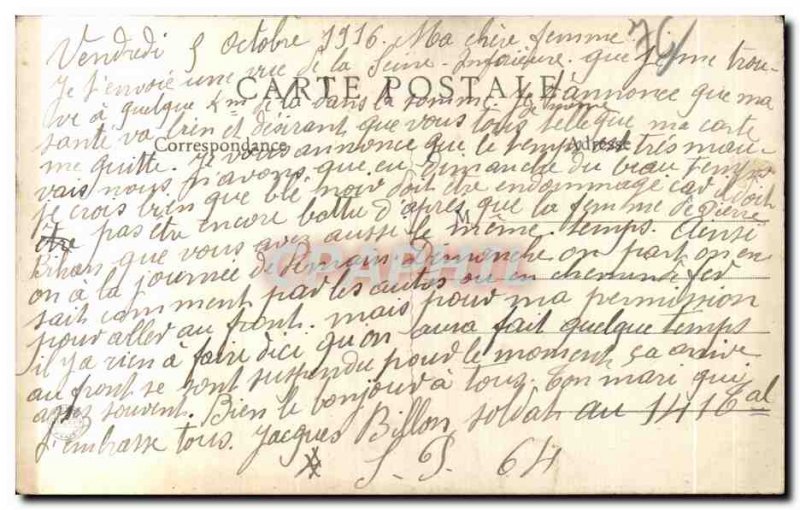 Vendredi 5 Octobre 1916. Ma chère femme.
Je t'envoie une vue de la Seine-Inférieure que je me trou-
CARTE POSTALE
ve à quelque km de la dans la somme. Je t'annonce que ma
santé va bien et désirant que vous tous de même telle que ma carte
Correspondance
Adresse
me quitte. Je vous annonce que le temps est très mau-
vais nous n'avons que eu dimanche du beau temps
je crois bien que blé noir doit être endommagé car doit
être pas être encore battu d'après que la femme de Pierre
M
que vous avez aussi le même temps. Ausi
on a la journée de demain dimanche on part on en
sait comment par les autos ou en chemin de fer
pour aller au front. mais pour ma permission
il y a rien à faire dici qu'on aura fait quelque temps
au front se sont suspendu pour le moment ça arrive
assez souvent. Bien le bonjour à tous. Ton mari qui
t'embrasse tous. Jacques Billon, soldat au 1416 al
S. P. 64